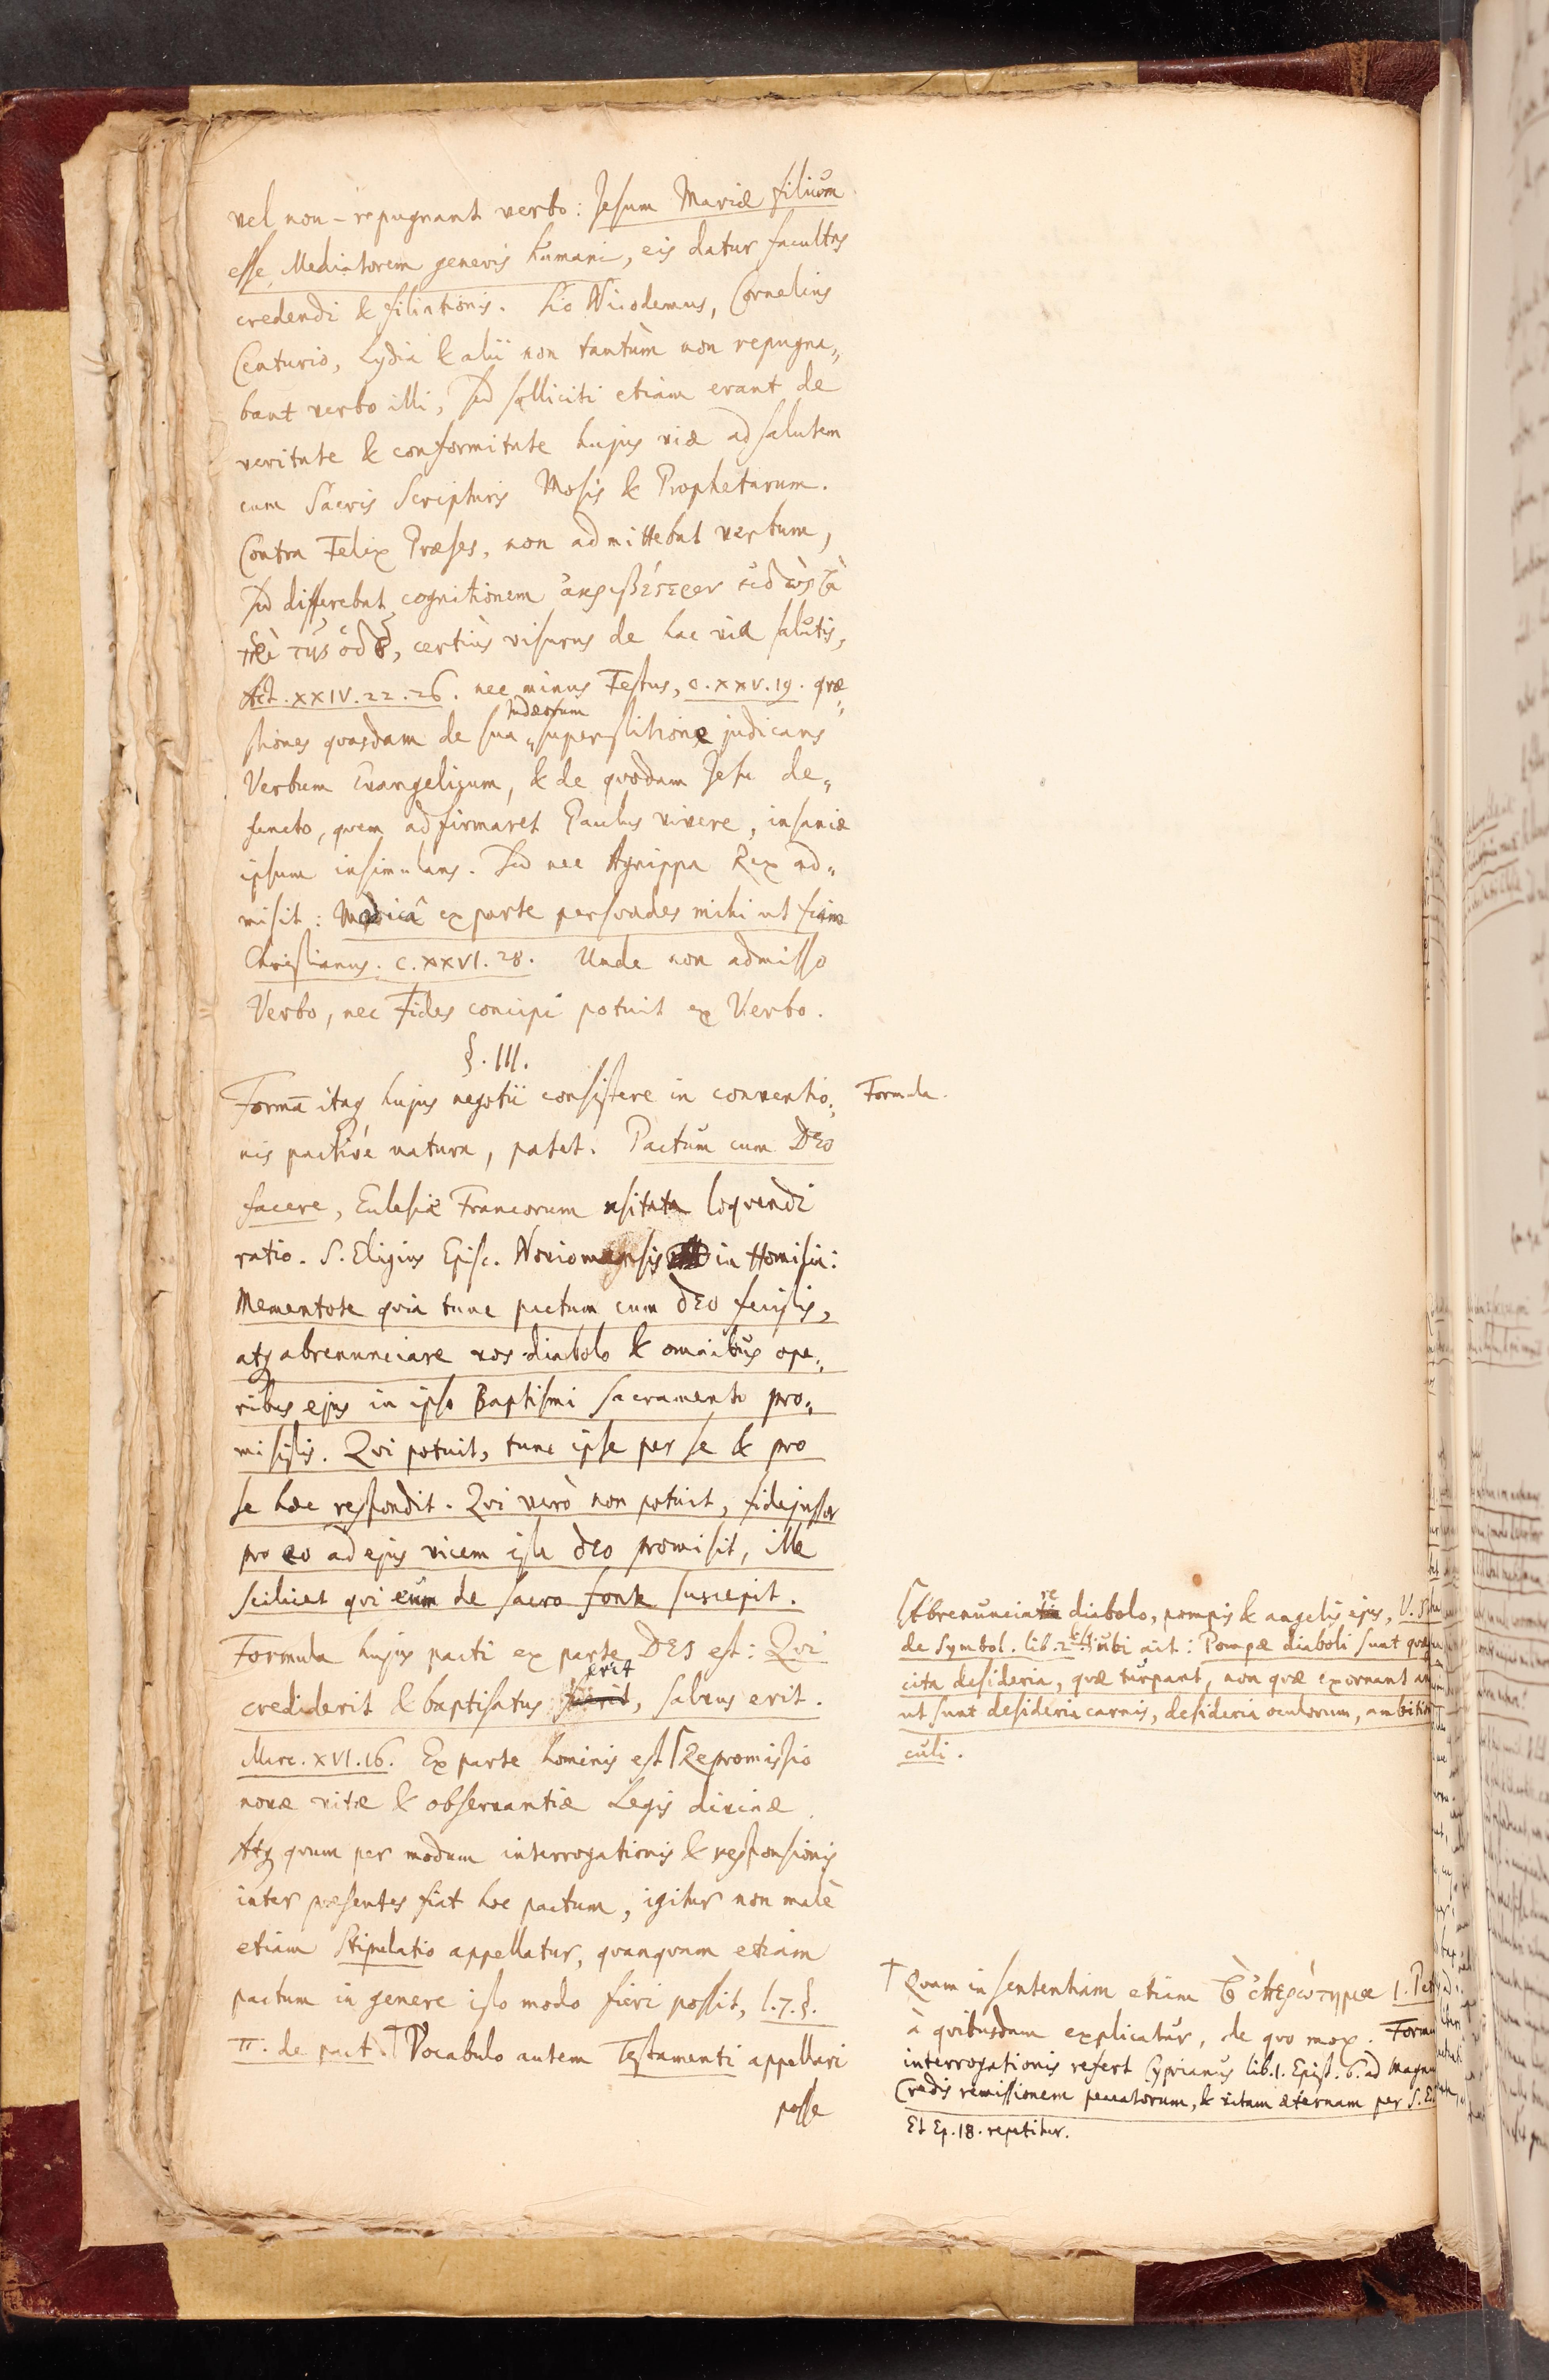 vel non-repugnant verbo: Jesum Mariæ filium
esse Mediatorem generis humani, eis datur facultas
credendi & filiationis. Sic Nicodemus, Cornelius
Centurio, Lydia & alii non tantùm non repugna„
bant verbo illi, sed solliciti etiam erant de
veritate & conformitate hujus viæ ad salutem
cum Sacris Scripturis Mosis & Prophetarum.
Contra Felix Præses, non admittebat verbum,
sed differebat cognitionem ἀκριβέστερον εἰδὼς τὰ
περὶ τῆς ὁδοῦ, certiùs visurus de hac via salutis,
Act. XXIV. 22. 26. nec minus Festus, c. XXV. 19. quæ„
stiones quasdam de sua Judæorum superstitione judicans
Verbum Evangelicum, & de quodam Jesu de„
functo, quem adfirmaret Paulus vivere, insaniæ
ipsum insimulans. Sed nec Agrippa Rex ad„
misit: Modicâ ex parte persuades mihi ut fiam
Christianus. c. XXVI. 28. Unde non admisso
Verbo, nec Fides concipi potuit ex Verbo.
§. III.
Formā itaq hujus negotii consistere in conventio„
nis pactivè natura, patet. Pactum cum DEO
facere, Eclesiæ Francorum usitata loquendi
ratio. S. Eligius Episc. Noviomensis in Homilia:
Mementote quia tunc pactum cum DEO fecistis,
atq abrenunciare vos diabolo & omnibus ope„
ribus ejus in ipso Baptismi sacramento pro„
misistis. Qui potuit, tunc ipse per se & pro
se hoc respondit. Qui verò non potuit, fidejussor
pro eo ad ejus vicem ista DEO promisit, ille
scilicet qui eum de sacro fonte suscepit.
Formula hujus pacti ex parte DEI est: Qui
crediderit & baptisatus erit, salvus erit.
Marc. XVI. 16. Ex parte hominis est ⌈Repromissio
novæ vitæ & observantiæ Legis divinæ.
Atq quum per modum interrogationis & responsionis
inter præsentes fiat hoc pactum, igitur non malè
etiam Stipulatio appellatur, quanquam etiam
pactum in genere isto modo fieri possit, l. 7. §.
π. de pact. † Vocabulo autem Testamenti appellari
posse
Formula.
⌈Abrenunciare diabolo, pompis & angelis ejus, V.
de Symbol. lib. 2 ubi ait: Pompæ diaboli sunt
cita desideria, quæ turpant, non quæ exornant
ut sunt desideria carnis, desideria oculorum,
culi.
† Quam in sententiam etiam τὸ ἐπερώτημα 1. Pet
à quibusdam explicatur, de quo mox. Form
interrogationis refert Cyprianus lib. 1. Epist. 6. ad Magn
Credis remissionem peccatorum, & vitam æternam per S.
Et Ep. 18. repetitur.